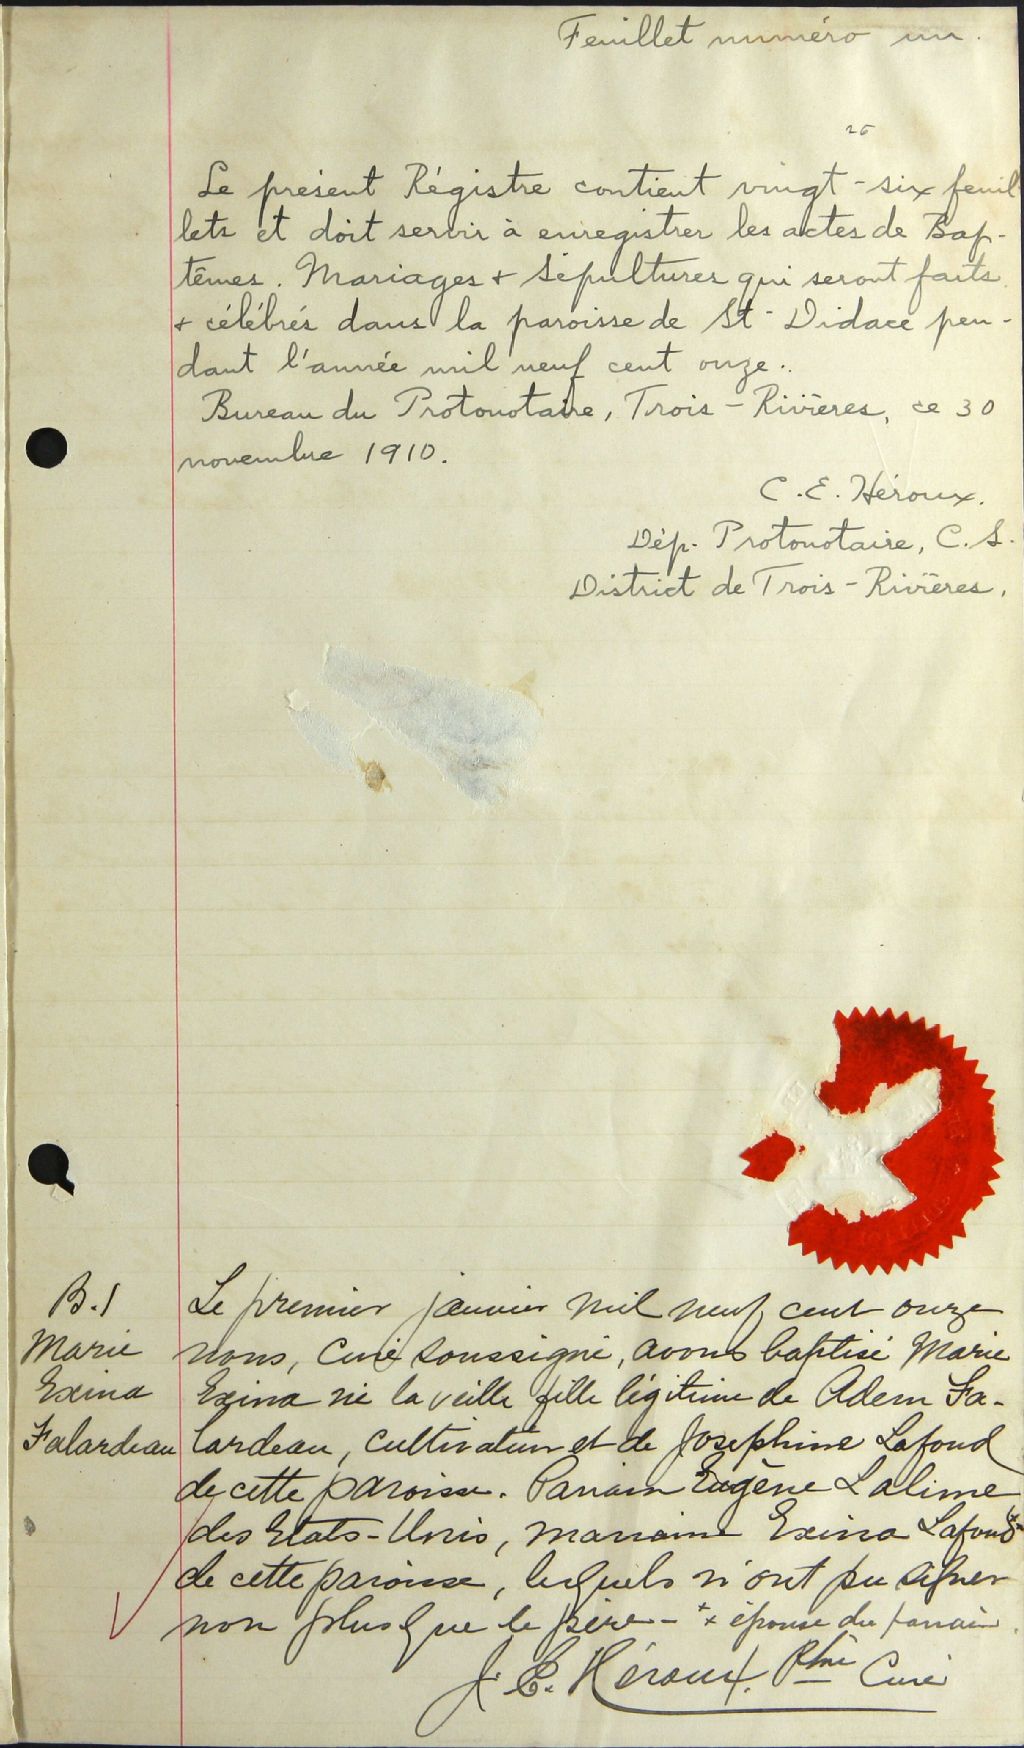 Feuillet numéro un.
26
Le présent Régistre contient vingt-six feuil
lets et doit servir à enregistrer les actes de Bap-
têmes. Mariages + Sépultures qui seront faits
+ célébrés dans la paroisse de St-Didace pen-
dant l'année mil neuf cent onze..
Bureau du Protonotaire, Trois-Rivières, ce 30
novembre 1910.
C.E. Héroux.
Dép. Protonotaire, C.S.
District de Trois-Rivières.
B.1
Marie
Exina
Falardeau
Le premier janvier mil neuf cent onze
nous, curé soussigné, avons baptisé Marie
Exina née la veille fille légitime de Adem Fa-
lardeau, cultivateur et de Josephine Lafond
de cette paroisse. Parrain Eugène Lalime
des Etats-Unis, marraine Exina Lafond ++
de cette paroisse, lesquels n'ont pu signer
non plus que le père - ++ épouse du parrain.
J. E. Héroux. Ptre Curé